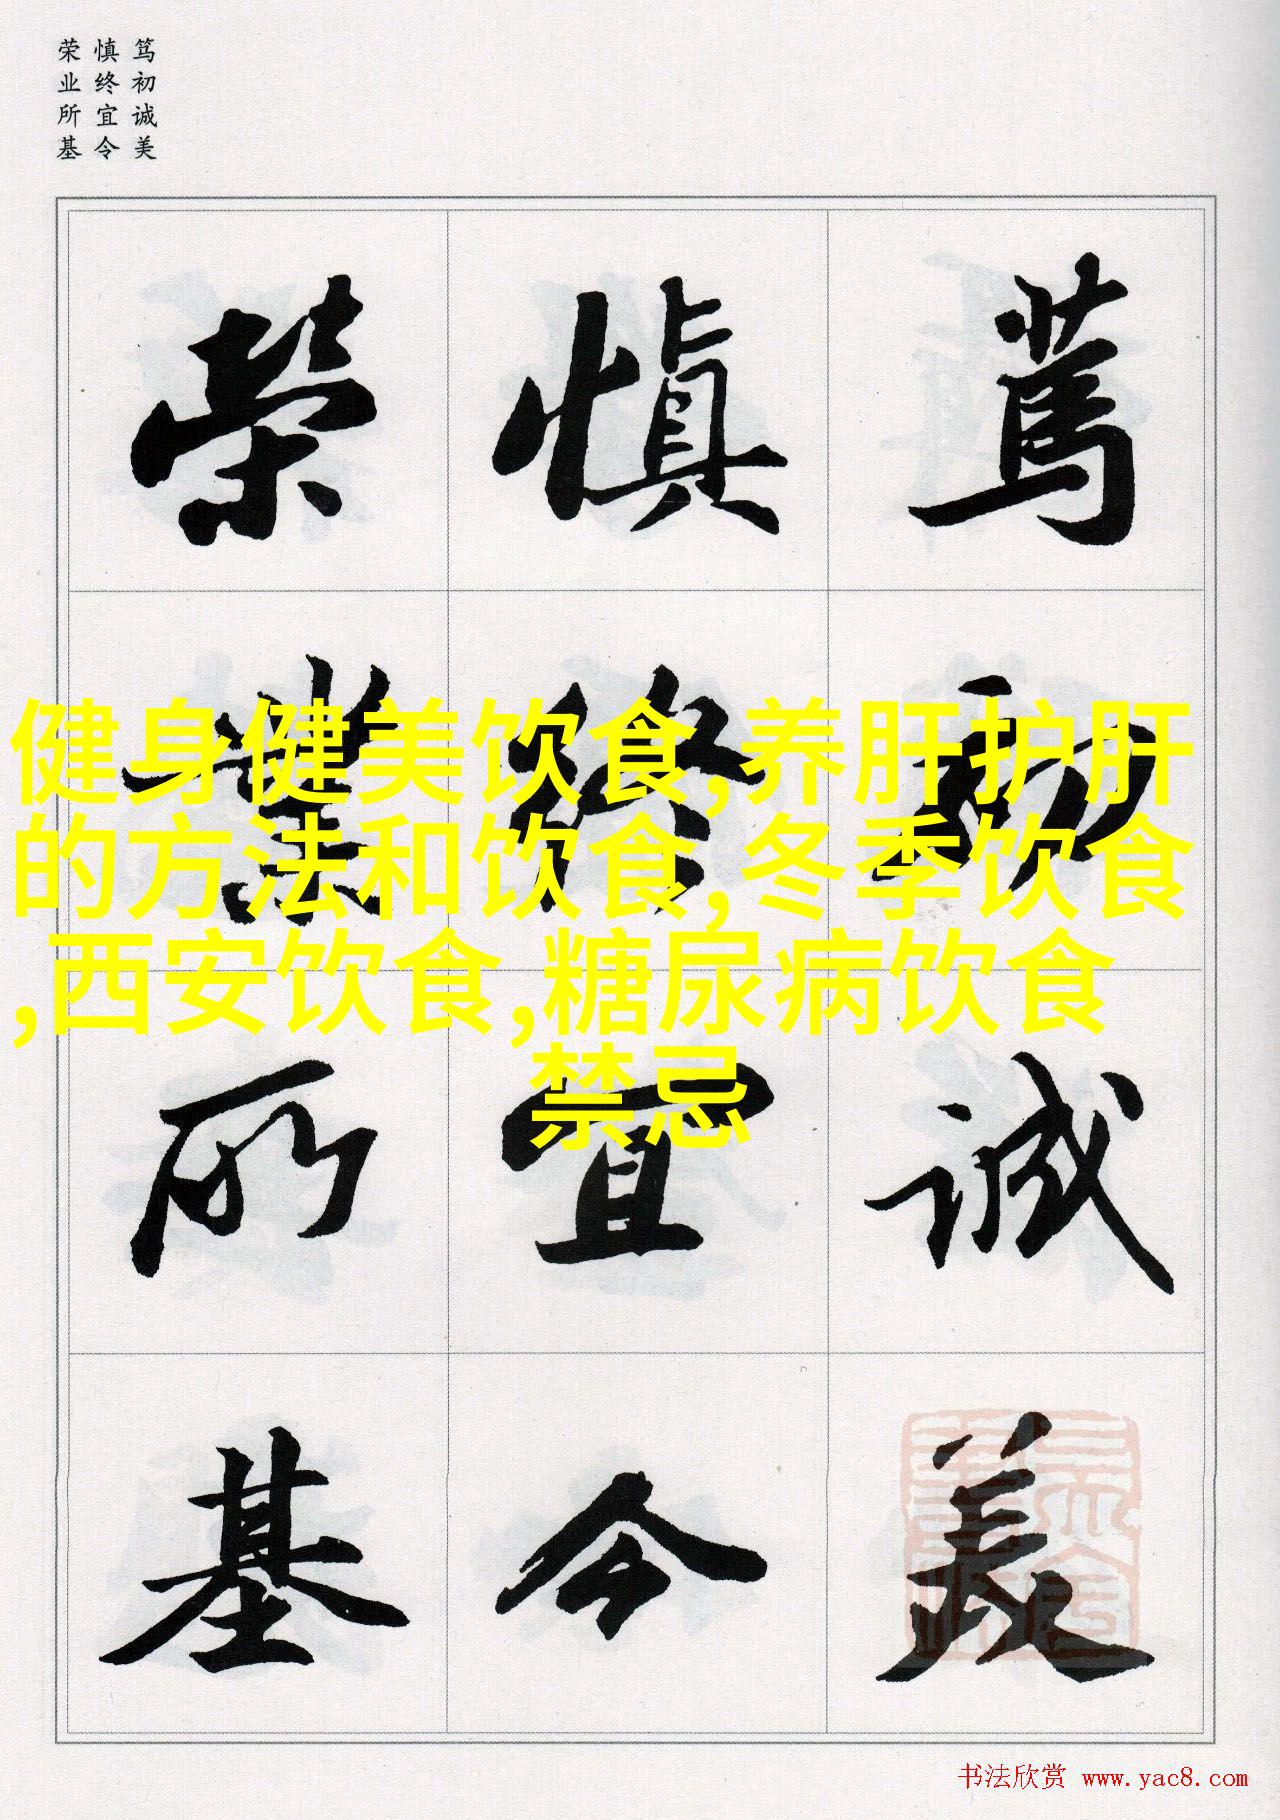 笃初诚美
慎终宜令
荣业所基
篤初誠美
慎終宜令
榮業所基
健身健美饮食,养肝护肝
的方法和饮食,冬季饮食
,西安饮食,糖尿病饮食
禁忌
书法欣赏 www.yac8.com